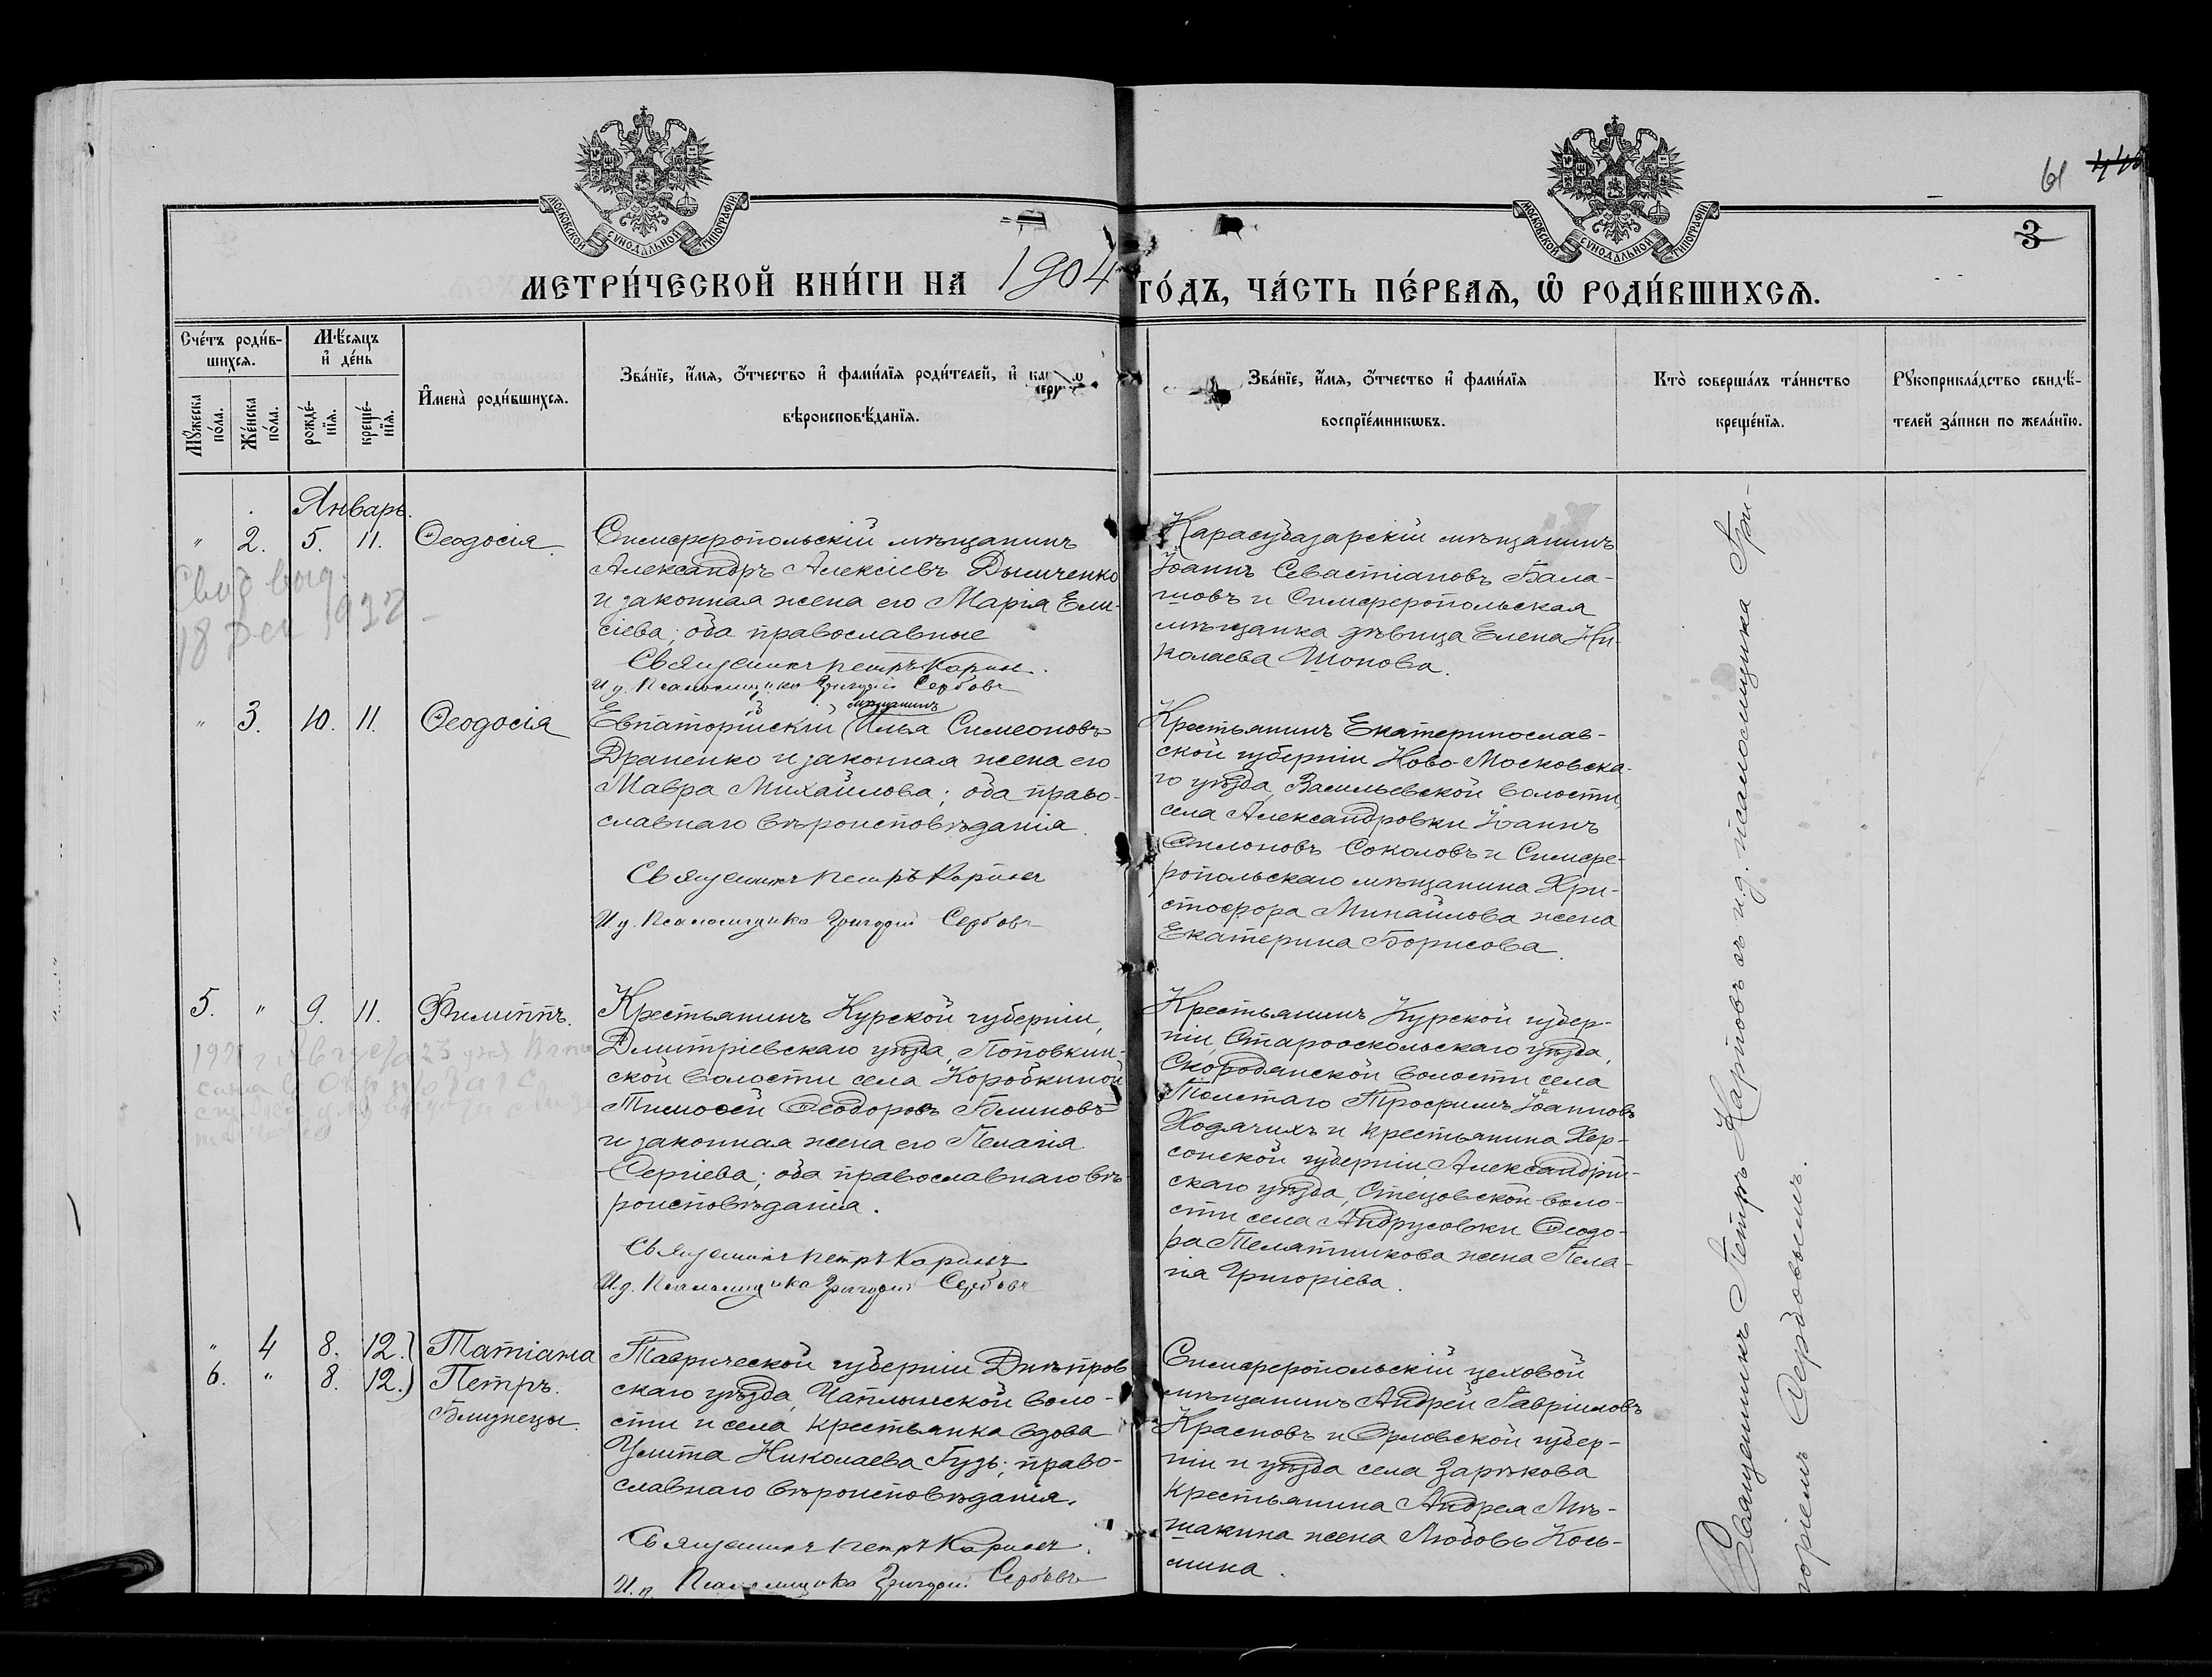 МОСКОВСКОЙ СѴНОДАЛЬНОЙ ТИПОГРАФІИ
МОСКОВСКОЙ СѴНОДАЛЬНОЙ ТИПОГРАФІИ
61
3
МЕТРИ́ЧЕСКОЙ КНИ́ГИ НА 1904 ГО́ДЪ, ЧА́СТЬ ПЕ́РВАѦ, Ѡ҆ РОДИ́ВШИХСѦ.
Сче́тъ роди́в-
шихсѧ.
Мѣ́сѧцъ
и҆ де́нь
Мꙋ́жеска
по́ла.
Же́нска
по́ла.
рожде́-
нїѧ.
креще́-
нїѧ.
И҆мена̀ роди́вшихсѧ.
Зва́нїе, и҆́мѧ, ѻ҆́тчество и҆ фами́лїѧ роди́телей, и҆
вѣроисповѣ́данїѧ.
Зва́нїе, и҆́мѧ, ѻ҆́тчество и҆ фами́лїѧ
воспрїе́мникѡвъ.
Кто̀ соверша́лъ та́инство
креще́нїѧ.
Рꙋкоприкла́дство свидѣ́-
телей за́писи по жела́нїю.
Январь.
" 2. 5. 11. Ѳеодосія.
Симферопольскій мѣщанинъ
Александръ Алексіевъ Дымченко
и законная жена его Марія Ели-
сіева; оба православные
Священникъ Петръ Карповъ.
И. д. Псаломщика Григорій Сербовъ
Карасубазарскій мѣщанинъ
Іоаннъ Севастіановъ Бала-
шовъ и Симферопольская
мѣщанка дѣвица Елена Ни-
колаева Шопова.
18 Дек 1932
" 3. 10. 11. Ѳеодосія
мѣщанинъ
Евпаторійскій Илья Симеоновъ
Драненко и законная жена его
Мавра Михайлова; оба право-
славнаго вѣроисповѣданія.
Священникъ Петръ Карповъ
И. д. Псаломщика Григорій Сербовъ
Крестьянинъ Екатеринослав-
ской губерніи Ново-Московска-
го уѣзда, Васильевской волости,
села Александровки Іоаннъ
Соколовъ и Симфе-
ропольскаго мѣщанина Хри-
стофора Минайлова жена
Екатерина Борисова.
5. " 9. 11. Филиппъ.
Крестьянинъ Курской губерніи,
Дмитріевскаго уѣзда, Поповкин-
ской волости села Коробкиной
Тимоѳей Ѳеодоровъ Блиновъ
и законная жена его Пелагія
Сергіева; оба православнаго вѣ-
роисповѣданія.
Священникъ Петръ Карповъ
И. д. Псаломщика Григорій Сербовъ
Крестьянинъ Курской губер-
ніи, Старооскольскаго уѣзда,
Скороднянской волости села
Толстаго Трофимъ Іоанновъ
Ходячихъ и крестьянина Хер-
сонской губерніи, Александрій-
скаго уѣзда, Стецовской воло-
сти села Андрусовки Ѳеодо-
ра Телятникова жена Пела-
гія Григоріева.
" 4 8. 12.) Татіана
6. " 8. 12.) Петръ.
Близнецы.
Таврической губерніи Днѣпров
скаго уѣзда, Чаплынской воло-
сти и села крестьянка вдова
Улита Николаева Гузь; право-
славнаго вѣроисповѣданія.
Священникъ Петръ Карповъ.
И. д. Псаломщика Григорій Сербовъ
Симферопольскій цеховой
мѣщанинъ Андрей Гавріиловъ
Красновъ и Орловской губер-
ніи и уѣзда села Зарѣкова
крестьянина Андрея Мѣ-
шакина жена Любовь Козь-
мина.
Священникъ Петръ Карповъ съ и. д. псаломщика Гри-
горіемъ Сербовымъ.